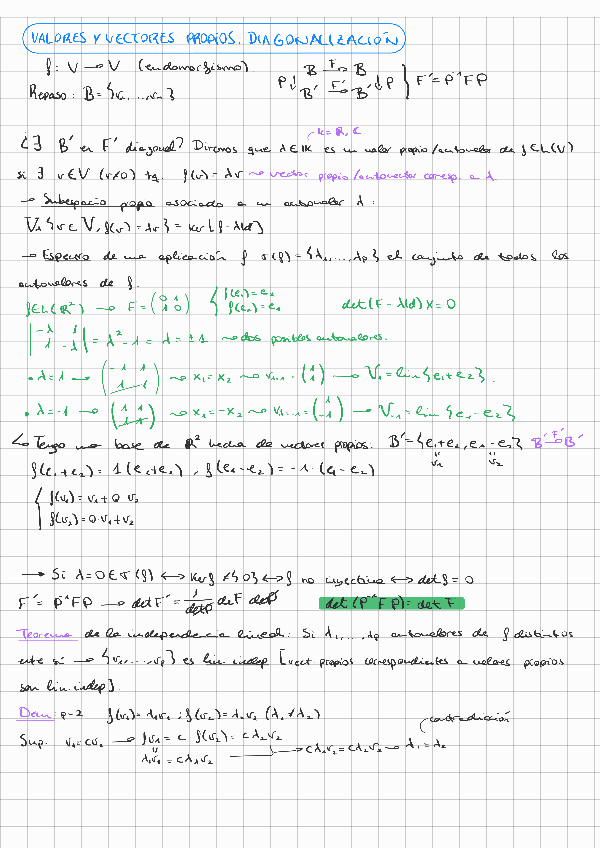 VALORES Y VECTORES PROPIOS. DIAGONALIZACIÓN
f: V → V (endomorfismo)
Repaso: B = {v₁, ..., vₙ}
P↓ B →F B ↓P
B' →F' B' } F' = P⁻¹FP
K = ℝ, ℂ
¿∃ B' en F' diagonal? Diremos que λ∈K es un valor propio/autovalor de f∈L(V)
si ∃ v∈V (v≠0) tq. f(v) = λv ⇝ vector propio/autovector corresp. a λ
→ Subespacio propio asociado a un autovalor λ:
Vλ {v⊂V, f(v) = λv} = Ker[f-λId]
→ Espectro de una aplicación f σ(f) = {λ₁, ..., λp} el conjunto de todos los
autovalores de f.
f∈L(ℝ²) → F = (0 1 / 1 0) { f(e₁) = e₂ / f(e₂) = e₁ det(F-λId)X = 0
|-λ 1 / 1 -λ| = λ²-1 = λ = ±1 ⇝ dos posibles autovalores.
• λ=1 → (-1 1 / 1 -1) ⇝ x₁=x₂ ⇝ (1 / 1) → V₁ = lin{e₁+e₂}.
• λ=-1 → (1 1 / 1 1) ⇝ x₁=-x₂ ⇝ (1 / -1) → V₋₁ = lin{e₁-e₂}
↳ Tengo una base de ℝ² hecha de vectores propios. B' = {e₁+e₂, e₁-e₂} B' →F' B'
v₁ v₂
f(e₁+e₂) = 1(e₁+e₂), f(e₁-e₂) = -1·(e₁-e₂)
{ f(v₁) = v₁+0·v₂
f(v₂) = 0·v₁+v₂
→ Si λ=0∈σ(f) ⟷ Ker f ≠{0} ⟷ f no inyectiva ⟷ det f = 0
F' = P⁻¹FP → det F' = 1/det P det F det P det(P⁻¹FP) = det F
Teorema de la independencia lineal: Si λ₁, ..., λp autovalores de f distintos
entre sí → {v₁, ..., vp} es lin. indep [vect propios correspondientes a valores propios
son lin. indep].
Dem: p=2 f(v₁) = λ₁v₁ ; f(v₂) = λ₂v₂ (λ₁≠λ₂)
contradicción
Sup. v₁=cv₂ → fv₁ = c f(v₂) = cλ₂v₂
λ₁v₁ = cλ₁v₂ → cλ₁v₂ = cλ₂v₂ → λ₁=λ₂